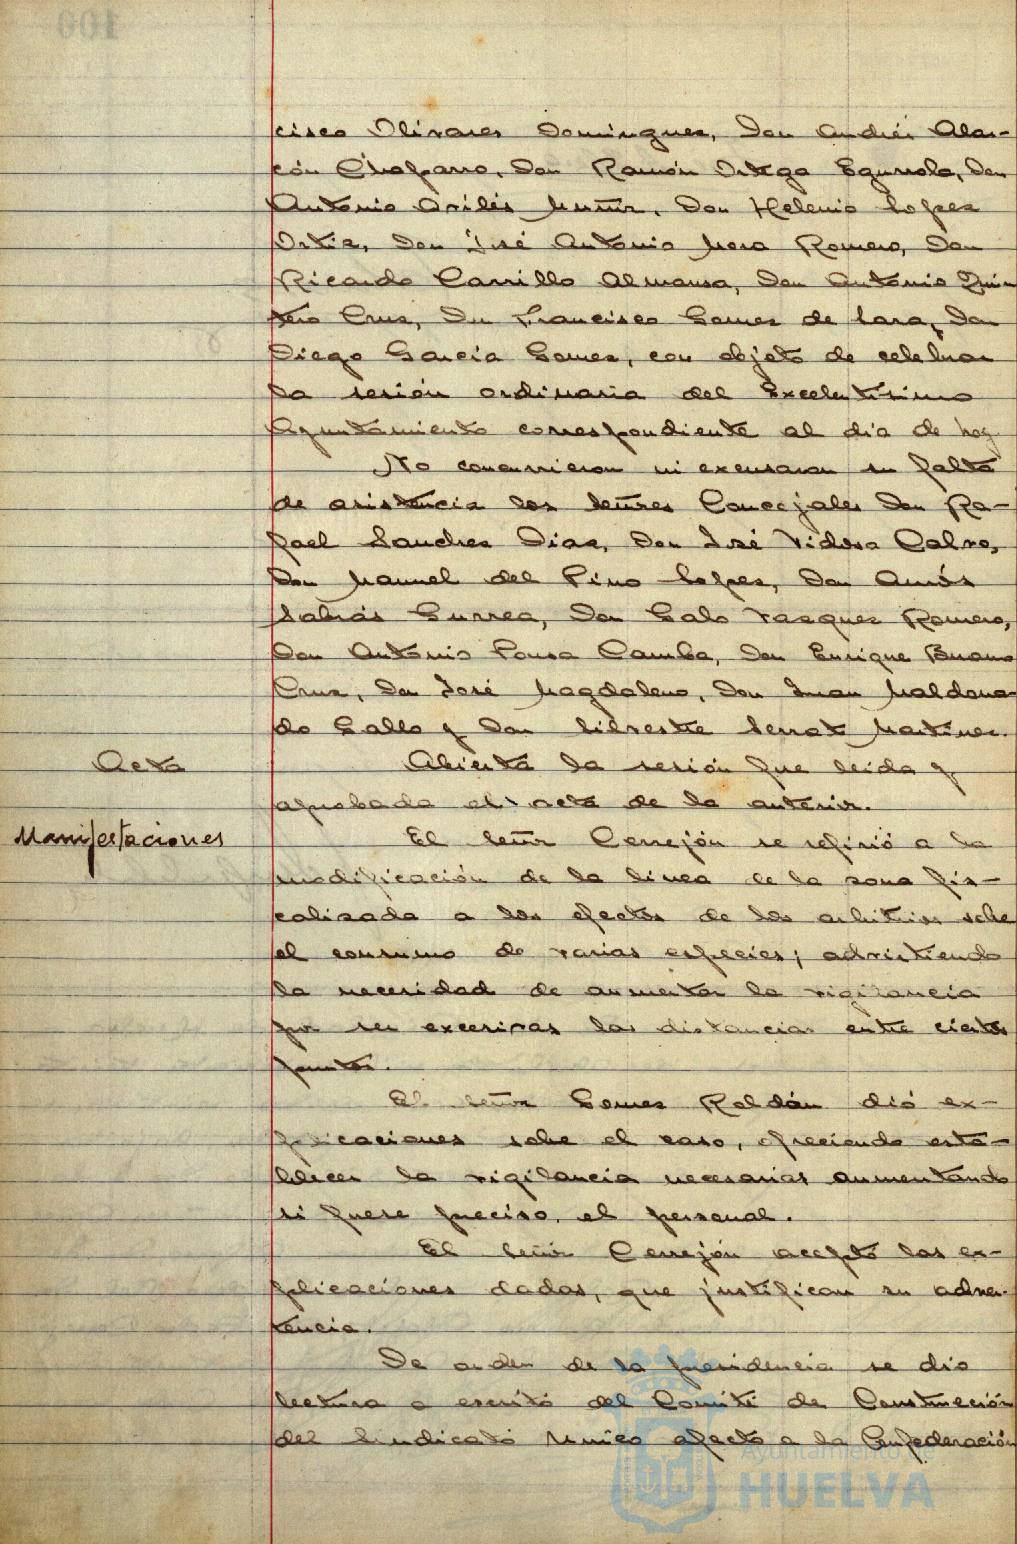 cisco Olivares Domínguez, Don Andrés Alar-
cón Chaparro, Don Ramón Ortega Egurrola, Don
Antonio Avilés Muñiz, Don Helenio Lopez
Ortiz, Don José Antonio Mora Romero, Don
Ricardo Carrillo Almansa, Don Antonio Quin
tero Cruz, Don Francisco Gomez de Lara, Don
Diego García Gomez, con objeto de celebrar
la sesión ordinaria del Excelentísimo
Ayuntamiento correspondiente al día de hoy
No concurrieron ni excusaron su falta
de asistencia los señores Concejales Don Ra-
fael Sanchez Diaz, Don José Vidosa Calvo,
Don Manuel del Pino Lopez, Don Amós
Sabrás Gurrea, Don Galo Vazquez Romero,
Don Antonio Pousa Camba, Don Enrique Bueno
Cruz, Don José Magdaleno, Don Juan Maldona-
do Gallo y Don Silvestre Serrat Martinez.
Acta
Abierta la sesión fue leida y
aprobada el acta de la anterior.
Manifestaciones
El señor Cerrejón se refirió a la
modificación de la linea de la zona fis-
calizada a los efectos de los arbitrios sobre
el consumo de varias especies; advirtiendo
la necesidad de aumentar la vigilancia
por ser excesivas las distancias entre ciertos
puntos.
El señor Gomez Roldán dió ex-
plicaciones sobre el caso, ofreciendo esta-
blecer la vigilancia necesarias aumentando
si fuese preciso, el personal.
El señor Cerrejón aceptó las ex-
plicaciones dadas, que justifican su adver-
tencia.
De orden de la presidencia se dio
lectura a escrito del Comité de Construcción
del Sindicato Unico afecto a la Confederación
Ayuntamiento de
HUELVA